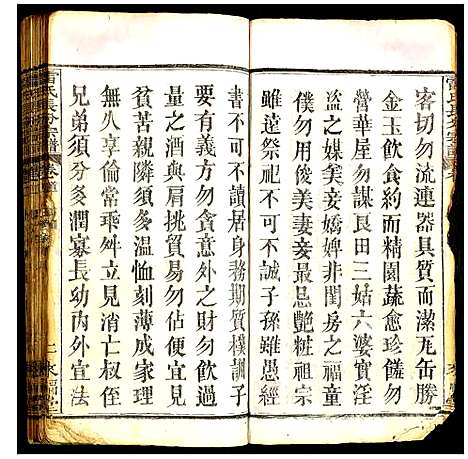 客切勿流連器具質而潔瓦缶勝
金玉飲食約而精園蔬愈珍饈勿
營華屋勿謀良田三姑六婆實淫
盜之媒美妾嬌婢非閨房之福童
僕勿用俊美妻妾最忌艷粧祖宗
雖遠祭祀不可不誠子孫雖愚經
書不可不讀居身務期質樸訓子
要有義方勿貪意外之財勿飲過
量之酒與挑貿易勿佔便宜見
貧苦親隣須多溫恤刻薄成家理
無久享倫常乖舛立見消亡叔侄
兄弟須分多潤寡長幼內外宜法
雷氏長分宗譜